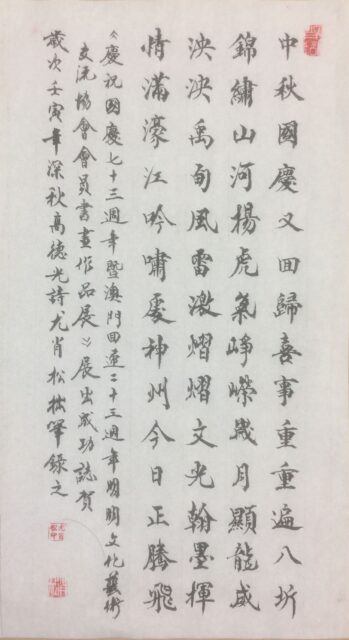 中秋國慶又回歸喜事重重遍八圻
錦繡山河揚虎氣崢嶸歲月顯龍威
泱泱禹甸風雷激熠熠文光翰墨揮
情滿濠江吟嘯處神州今日正騰飛
《慶祝國慶七十三週年暨澳門回歸二十三週年明明文化藝術
交流協會會員書畫作品展》展出成功誌賀
歲次壬寅年深秋高德光詩尤肖松拙筆錄之